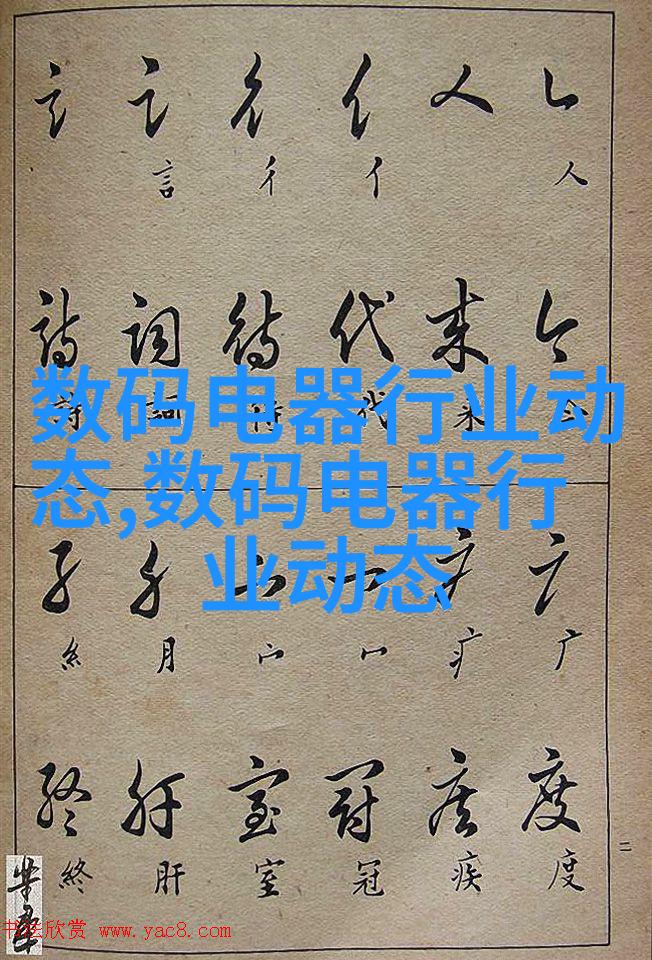 人 亻 彳 言
今 来 代 待 詞 詩
数码电器行业动
态,数码电器行
业动态
广 疒 冖 宀 月 糸
度 疾 冠 室 肝 終
二
书法欣赏 www.yac8.com